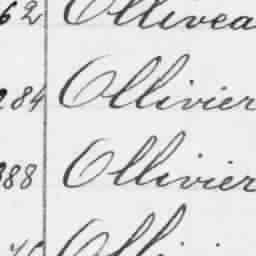 62 Ollivea
284 Ollivier
388 Ollivier